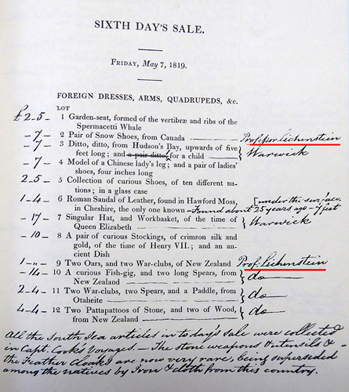 SIXTH DAY'S SALE.
FRIDAY, May 7, 1819.
FOREIGN DRESSES, ARMS, QUADRUPEDS, &c.
LOT
£2-5- 1 Garden-seat, formed of the vertibræ and ribs of the
Spermacetti Whale
-7- 2 Pair of Snow Shoes, from Canada Professor Lichenstein
-7- 3 Ditto, ditto, from Hudson's Bay, upwards of five
feet long; and a pair ditto for a child Warwick
-7- 4 Model of a Chinese lady's leg; and a pair of ladies'
shoes, four inches long
2-5- 5 Collection of curious Shoes, of ten different na-
tions; in a glass case
1-4- 6 Roman Sandal of Leather, found in Hawford Moss, under the surface
in Cheshire, the only one known - Found about 25 years ago - 7 feet
-17- 7 Singular Hat, and Workbasket, of the time of
Queen Elizabeth Warwick
-10- 8 A pair of curious Stockings, of crimson silk and
gold, of the time of Henry VII; and an an-
cient Dish
1-"- 9 Two Oars, and two War-clubs, of New Zealand Prof. Lichenstein
-16- 10 A curious Fish-gig, and two long Spears, from
New Zealand do
2-4- 11 Two War-clubs, two Spears, and a Paddle, from
Otaheite do
4-4- 12 Two Pattapattoos of Stone, and two of Wood,
from New Zealand do
All the South Sea articles in today's sale were collected
in Capt. Cook's Voyages - The stone weapons & Utensils &
the Feather Cloaks are now very rare, being superseded
among the natives by Iron & cloth from this country.